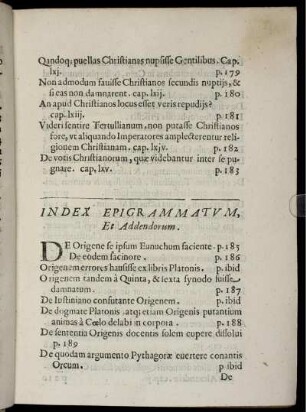 Qandoq; puellas Christianas nupsisse Gentilibus. Cap.
lxij. p. 179
Non admodum fauisse Christianos secundis nuptijs, &
si eas non damnarent. cap. lxij. p. 180
An apud Christianos locus esset veris repudijs?
cap. lxiij. p. 181
Videri sentire Tertullianum, non putasse Christianos
fore, vt aliquando Imperatores amplecterentur religionem
Christianam. cap. lxiv. p. 182
De votis Christianorum, quæ videbantur inter se pugnare.
cap. lxv. p. 183
INDEX EPIGRAMMATVM,
Et Addendorum.
DE Origene se ipsum Eunuchum faciente. p. 185
De eodem facinore. p. 186
Origenem errores hausisse ex libris Platonis. p. ibid
Origenem tandem à Quinta, & sexta synodo fuisse
damnatum. p. 187
De Iustiniano confutante Origenem. p. ibid
De dogmate Platonis atq; etiam Origenis putantium
animas à Cœlo delabi in corpora. p. 188
De sententia Origenis docentis solem cupere dissolui
p. 189
De quodam argumento Pythagoræ euertere conantis
Orcum. p ibid
De